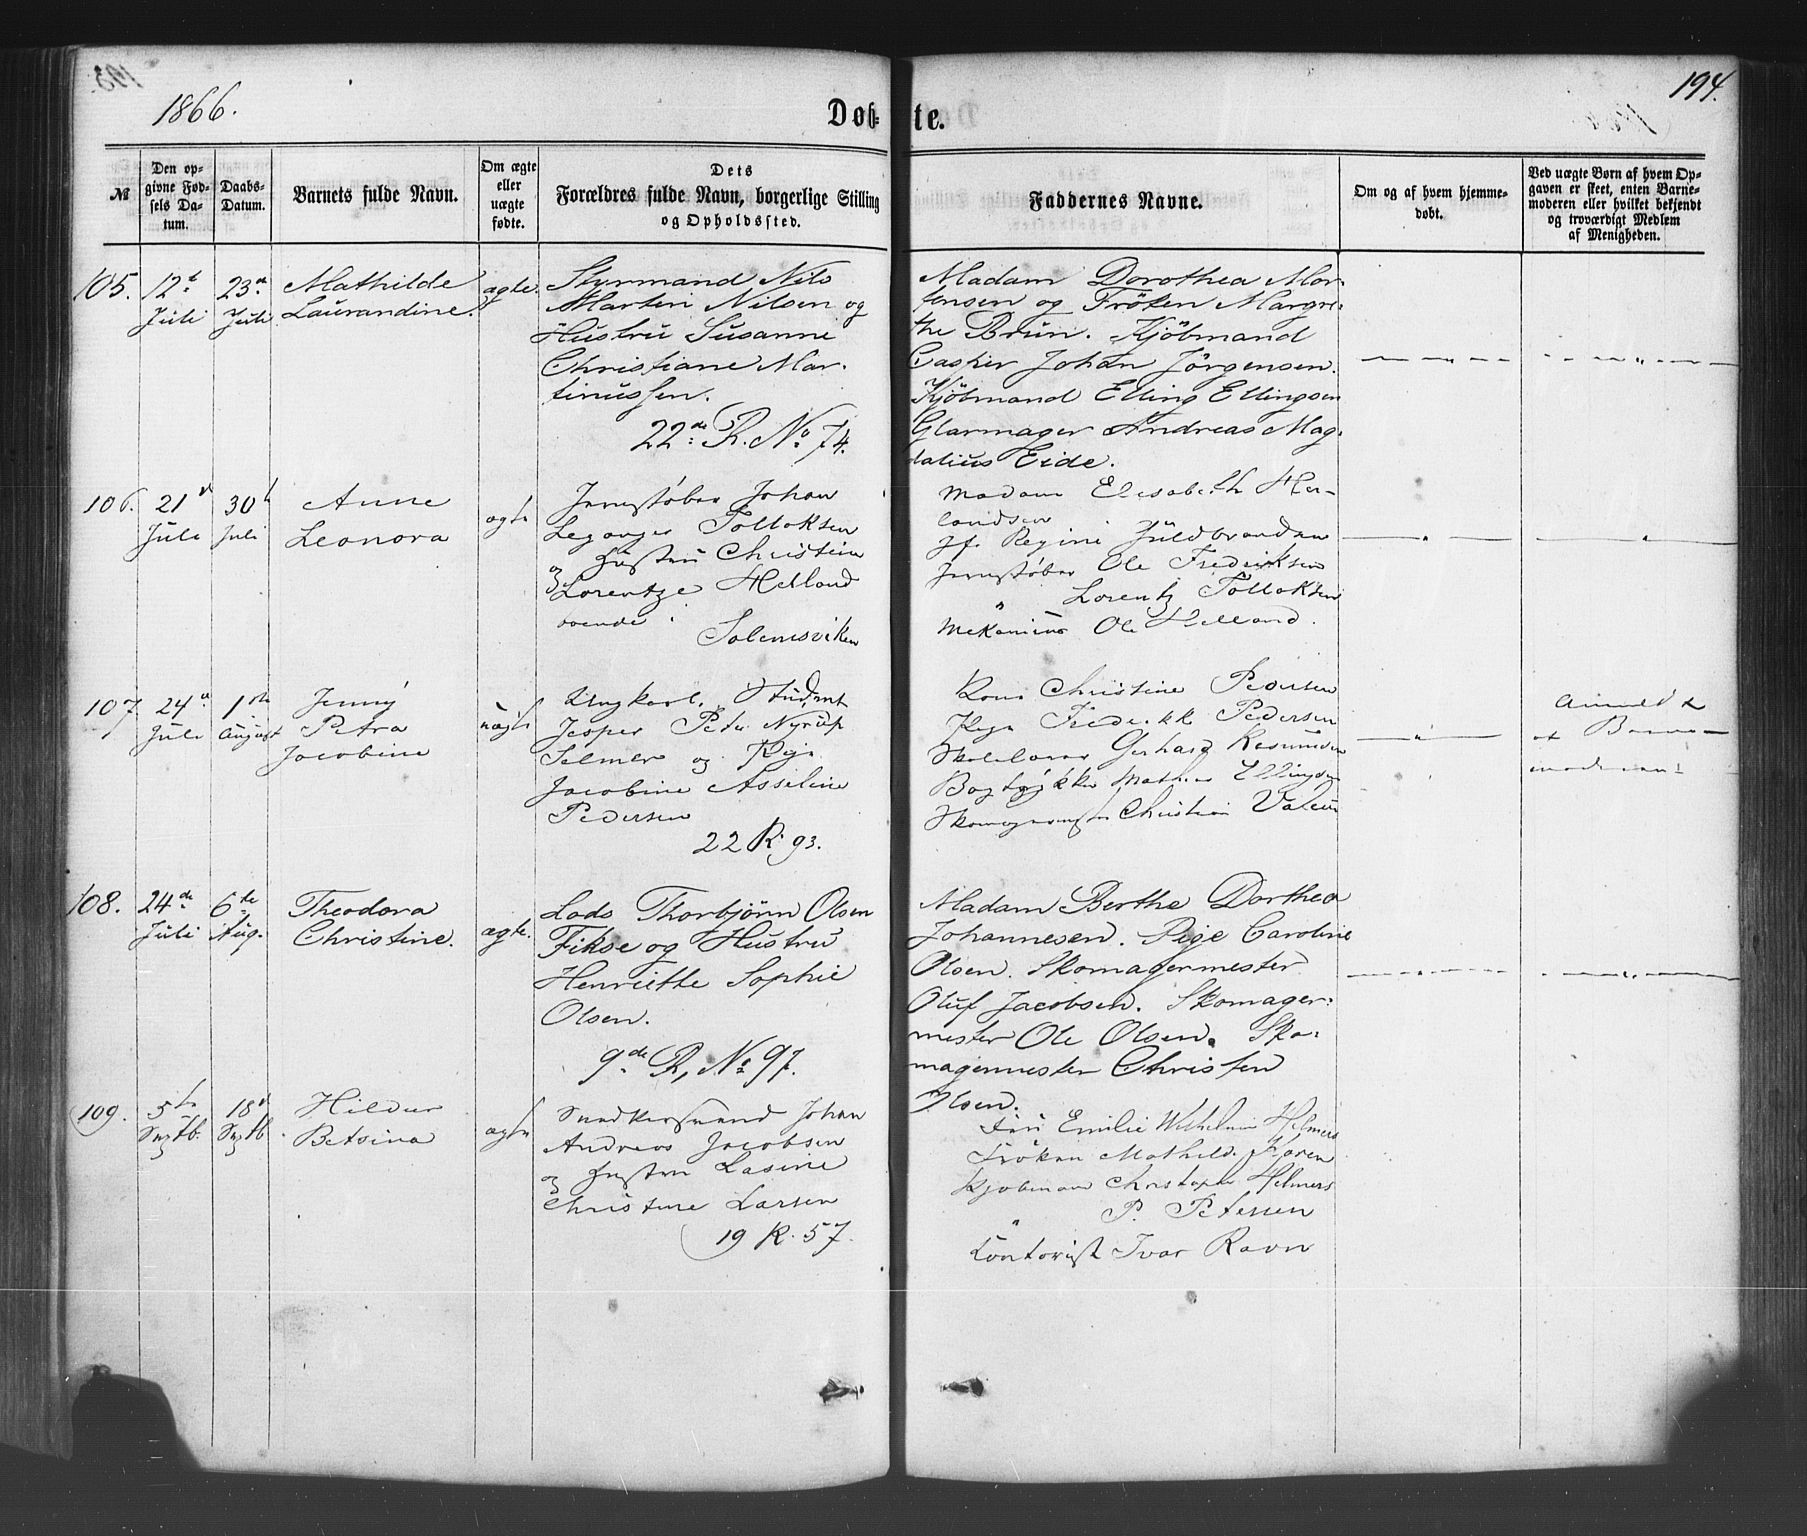 1866.
Døb-te.
194.
№
Den op-
givne Fød-
sels Da-
tum.
Daabs-
Datum.
Barnets fulde Navn.
Om ægte
eller
uægte
fødte.
Dets
Forældres fulde Navn, borgerlige Stilling
og Opholdssted.
Faddernes Navne.
Om og af hvem hjemme-
døbt.
Ved uægte Børn af hvem Op-
gaven er skeet, enten Barne-
moderen eller hvilket bekjendt
og troværdigt Medlem
af Menigheden.
105.
12te
Juli
23de
Juli
Mathilde
Laurandine.
ægte.
Styrmand Nils
Martin Nilsen og
Hustru Susanne
Christiane Mar-
tinussen.
22de R. No 74.
Madam Dorothea Mor-
tensen og Fröken Margre-
the Brun. Kjöbmand
Casper Johan Jörgensen.
Kjöbmand Elling Ellingsen
Glarmager Andreas Mag-
dalius Eide.
106.
21d
Juli
30t
Juli
Anne
Leonora
ægte
Jernstøber Johan
Leganger Tollaksen
og Hustru Christein
Lorentze Helland
boende i
Solemsviken
Madam Elisabeth Her-
landsen
Jf. Regine Huldbrandsen
Jernstøber Ole Frederiksen
Lorentz Tollaksen
Mekanikus Ole Helland.
107
24d
Juli
1ste
August
Jenny
Petra
Jacobine
uægte
Ungkarl, Student
Jesper Peter Nyrup
Selmer og Pige
Jacobine Asseline
Pedersen
22 R. 93.
Kone Christine Pedersen
Pige Frederikke Pedersen
Skolelærer Gerhard Rasmussen
Bogtrykker Mathias Ellingsen
Skomagermester Christian Valeur
Anmeldt
af Barne-
moderen
108.
24de
Juli
6te
Aug.
Theodora
Christine.
ægte.
Lods Thorbjörn Olsen
Fikse og Hustru
Henriette Sophie
Olsen.
9de R, No 97.
Madam Berthe Dorthea
Johannesen. Pige Caroline
Olsen. Skomagermester
Oluf Jacobsen. Skomager-
mester Ole Olsen. Sko-
magermester Christen
Olsen.
109.
5te
Septb.
18d
Septb.
Hildur
Betsina
ægte
Snedkersvend Johan
Andreas Jacobsen
og Hustru Lasine
Christine Larsen
19 R. 57.
Fru Emilie Wilhelmine Helmers
Frøken Mathilde
Kjøbmand Christopher Helmers
P. Petersen
Kontorist Ivar Ravn